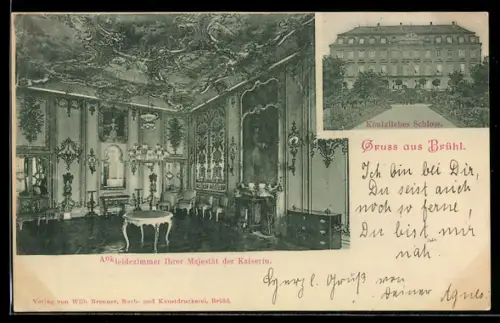 Königliches Schloss.
Gruss aus Brühl.
Ich bin bei Dir,
Du seist auch
noch so ferne,
Du bist mir
nah.
Ankleidezimmer Ihrer Majestät der Kaiserin.
Herzl. Gruß von
Deiner Agnes.
Verlag von Wilh. Brenner, Buch- und Kunstdruckerei, Brühl.